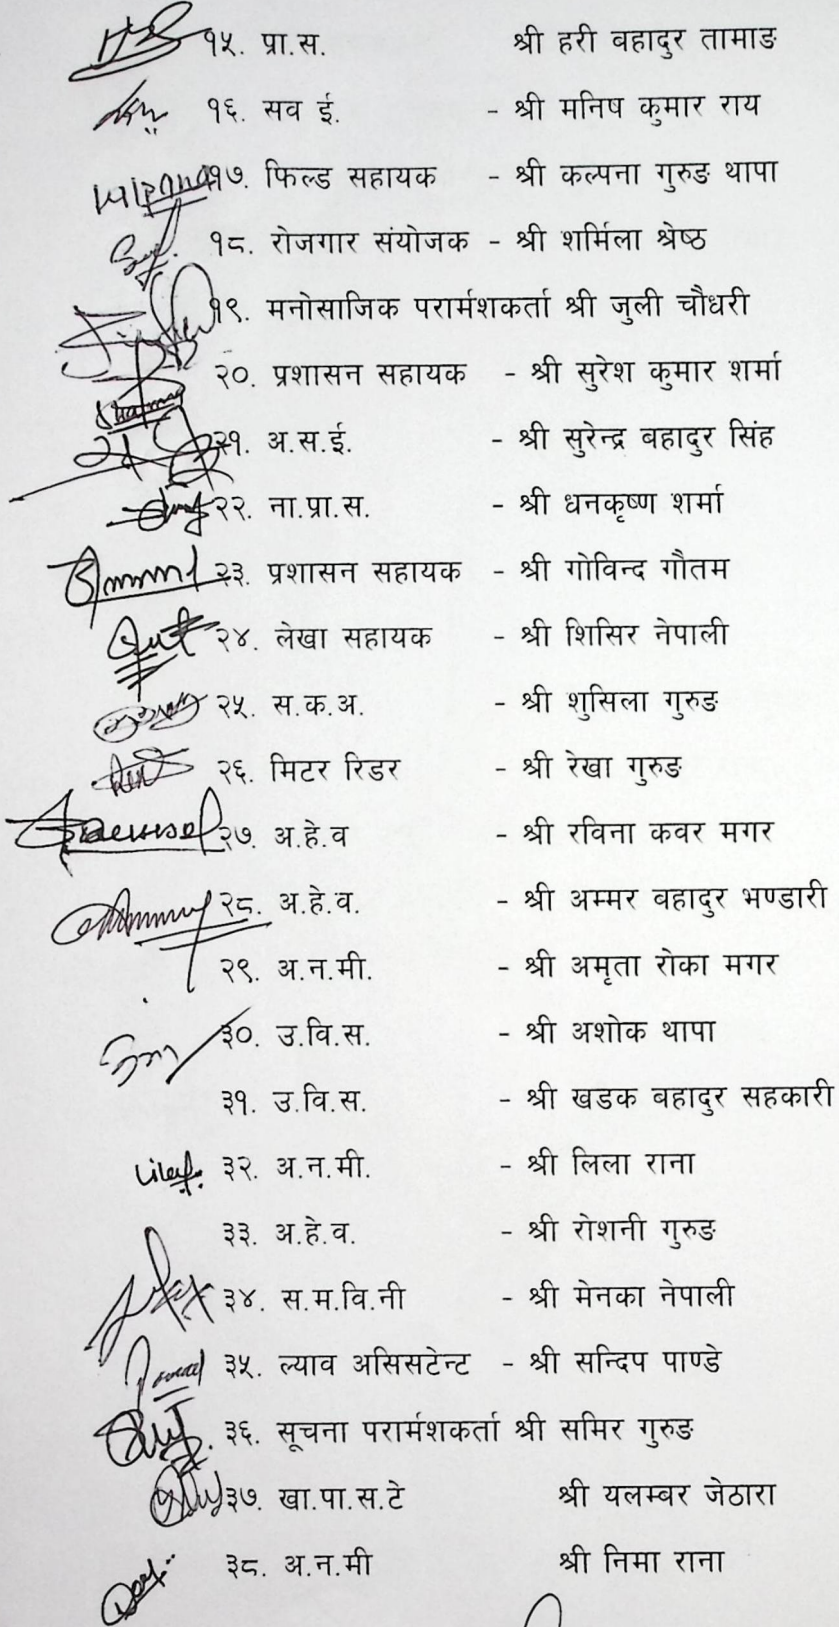 १५. प्रा.स. श्री हरी बहादुर तामाङ
१६. सव ई. - श्री मनिष कुमार राय
१७. फिल्ड सहायक - श्री कल्पना गुरुङ थापा
१८. रोजगार संयोजक - श्री शर्मिला श्रेष्ठ
१९. मनोसाजिक परार्मशकर्ता श्री जुली चौधरी
२०. प्रशासन सहायक - श्री सुरेश कुमार शर्मा
२१. अ.स.ई. - श्री सुरेन्द्र बहादुर सिंह
२२. ना.प्रा.स. - श्री धनकृष्ण शर्मा
२३. प्रशासन सहायक - श्री गोविन्द गौतम
२४. लेखा सहायक - श्री शिसिर नेपाली
२५. स.क.अ. - श्री शुसिला गुरुङ
२६. मिटर रिडर - श्री रेखा गुरुङ
२७. अ.हे.व - श्री रविना कवर मगर
२८. अ.हे.व. - श्री अम्मर वहादुर भण्डारी
२९. अ.न.मी. - श्री अमृता रोका मगर
३०. उ.वि.स. - श्री अशोक थापा
३१. उ.वि.स. - श्री खडक बहादुर सहकारी
३२. अ.न.मी. - श्री लिला राना
३३. अ.हे.व. - श्री रोशनी गुरुङ
३४. स.म.वि.नी - श्री मेनका नेपाली
३५. ल्याव असिसटेन्ट - श्री सन्दिप पाण्डे
३६. सूचना परार्मशकर्ता श्री समिर गुरुङ
३७. खा.पा.स.टे श्री यलम्बर जेठारा
३८. अ.न.मी श्री निमा राना